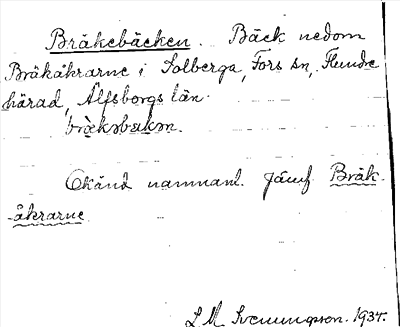 Bråkebäcken. Bäck nedom
Bråkåkrarne i Solberga, Fors sn, Flundre
härad, Älfsborgs län.
bràkəbækən.
Okänd namnanl. Jämf Bråk-
åkrarne
L M Svenungsson. 1934.